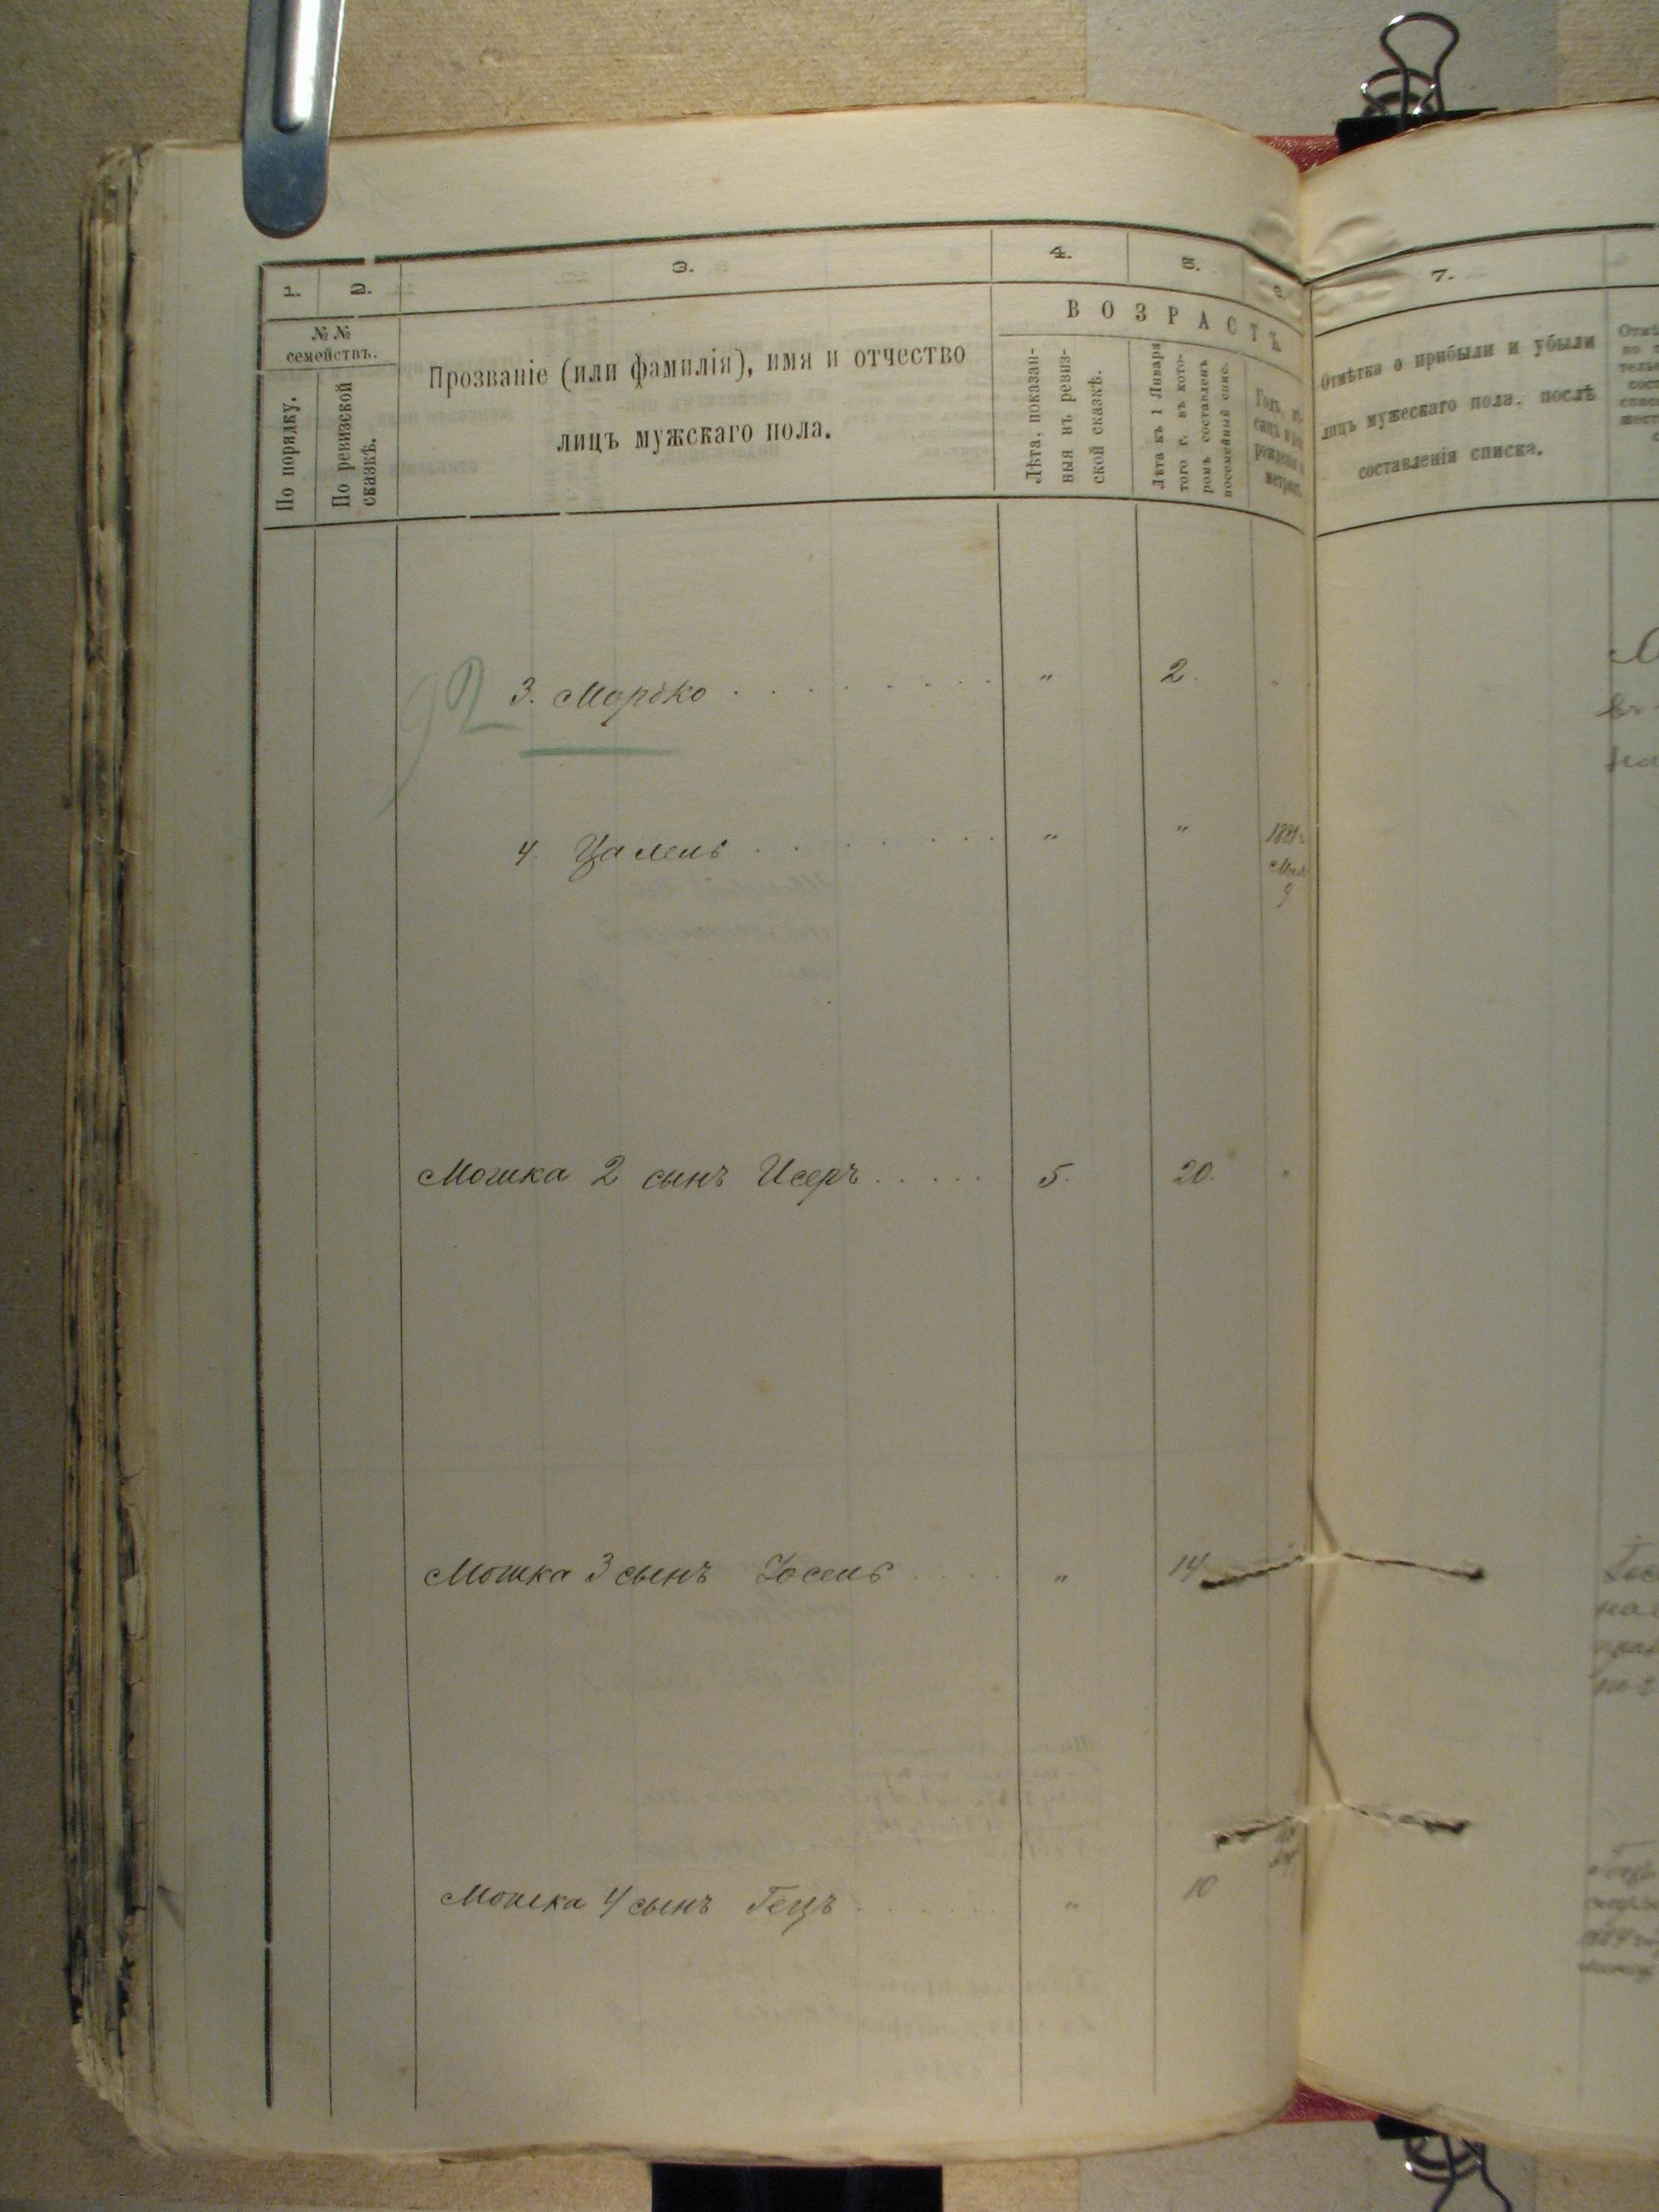 1.
2.
3.
4.
5.
7.
№ №
семействъ.
По порядку.
По ревизской
сказкѣ.
Прозваніе (или фамилія), имя и отчество
лицъ мужскаго пола.
ВОЗРАСТЪ.
Лѣта, показан-
ныя въ ревиз-
ской сказкѣ.
Лѣта къ 1 Января
того г. въ кото-
ромъ составленъ
посемейный спис.
Годъ, мѣ-
сяцъ и
рожденія
метрик.
Отмѣтка о прибыли и убыли
лицъ мужескаго пола, послѣ
составленія списка.
92
3. Мордко . . . . . . . . . „ 2. „
4. Цалель . . . . . . . „ „
Мошка 2 сынъ Исеръ . . . . . 5. 20. „
Мошка 3 сынъ Іосель . . . . „ 14
Мошка 4 сынъ Гецъ . . . . . . „ 10